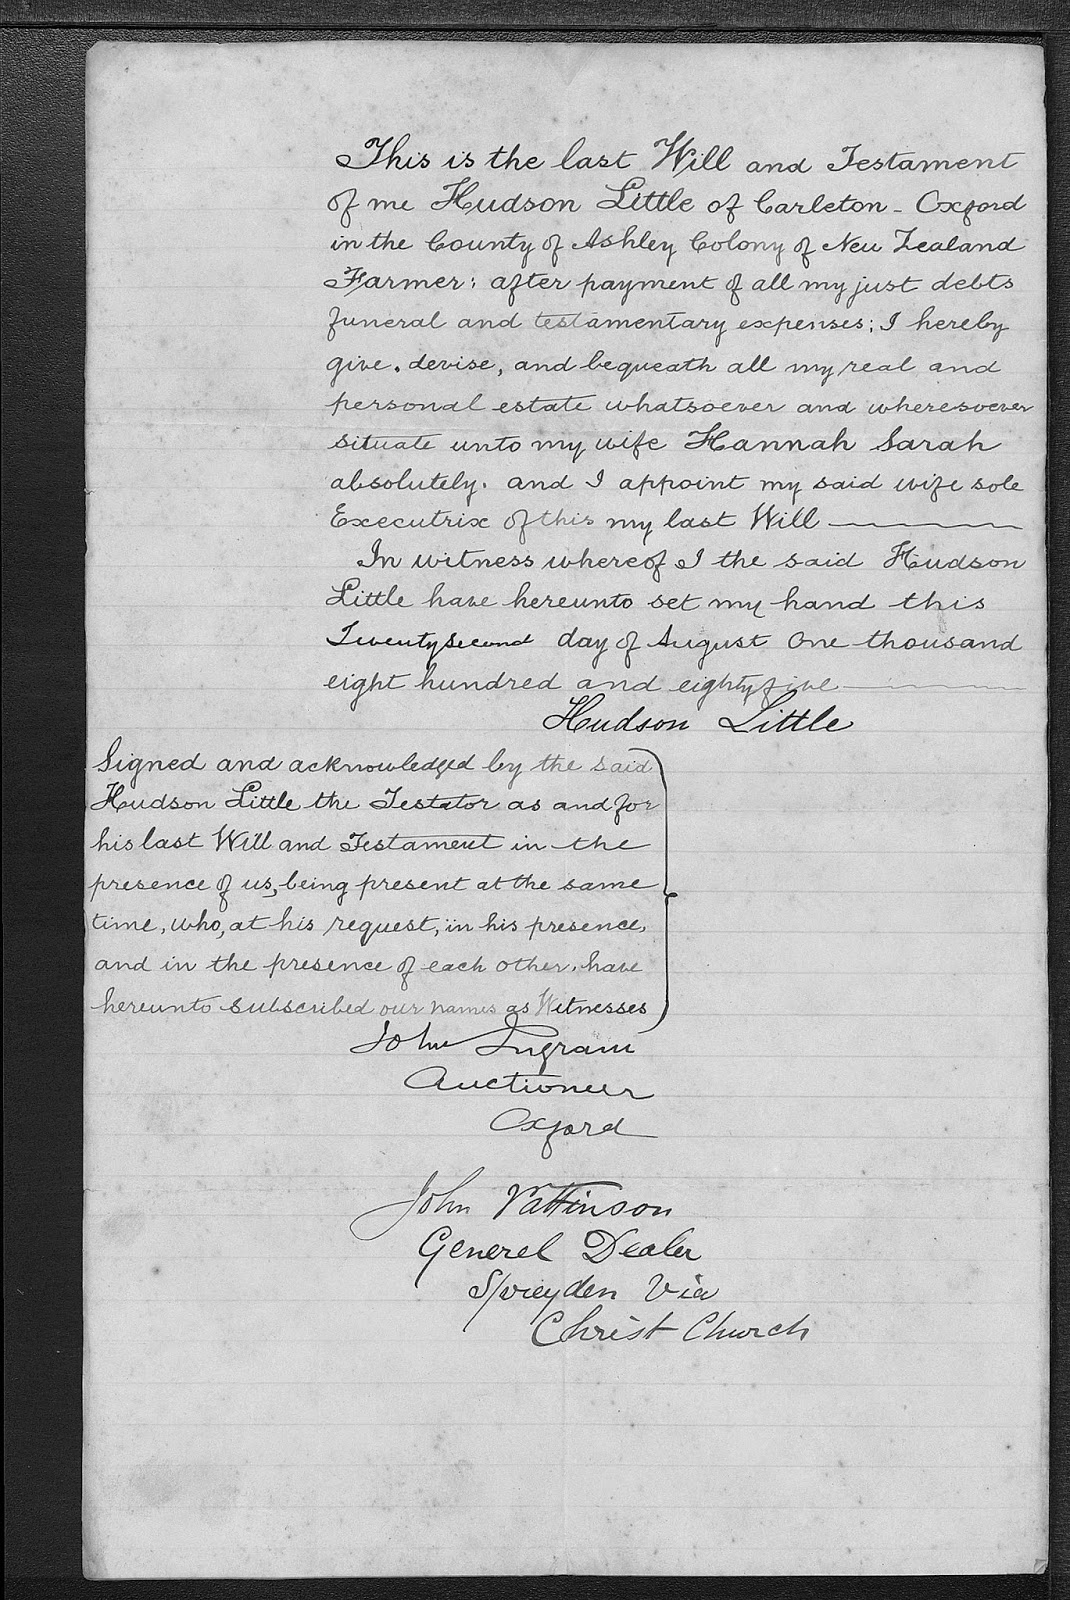 This is the last Will and Testament
of me Hudson Little of Carleton - Oxford
in the County of Ashley Colony of New Zealand
Farmer; after payment of all my just debts
funeral and testamentary expenses; I hereby
give. devise, and bequeath all my real and
personal estate whatsoever and wheresoever
situate unto my wife Hannah Sarah
absolutely. and I appoint my said wife sole
Executrix of this my last Will
In witness whereof I the said Hudson
Little have hereunto set my hand this
Twenty second day of August One thousand
eight hundred and eighty five
Hudson Little
Signed and acknowledged by the said
Hudson Little the Testator as and for
his last Will and Testament in the
presence of us, being present at the same
time, who, at his request, in his presence,
and in the presence of each other, have
hereunto subscribed our names as Witnesses
John Ingram
Auctioneer
Oxford
John Pattinson
Generel Dealer
Spreyden Via
Christ Church